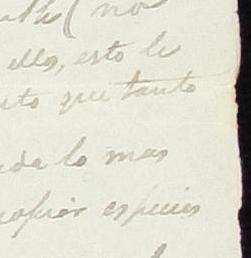 (no
ello, esto le
que tanto
lo mas
copiar especies